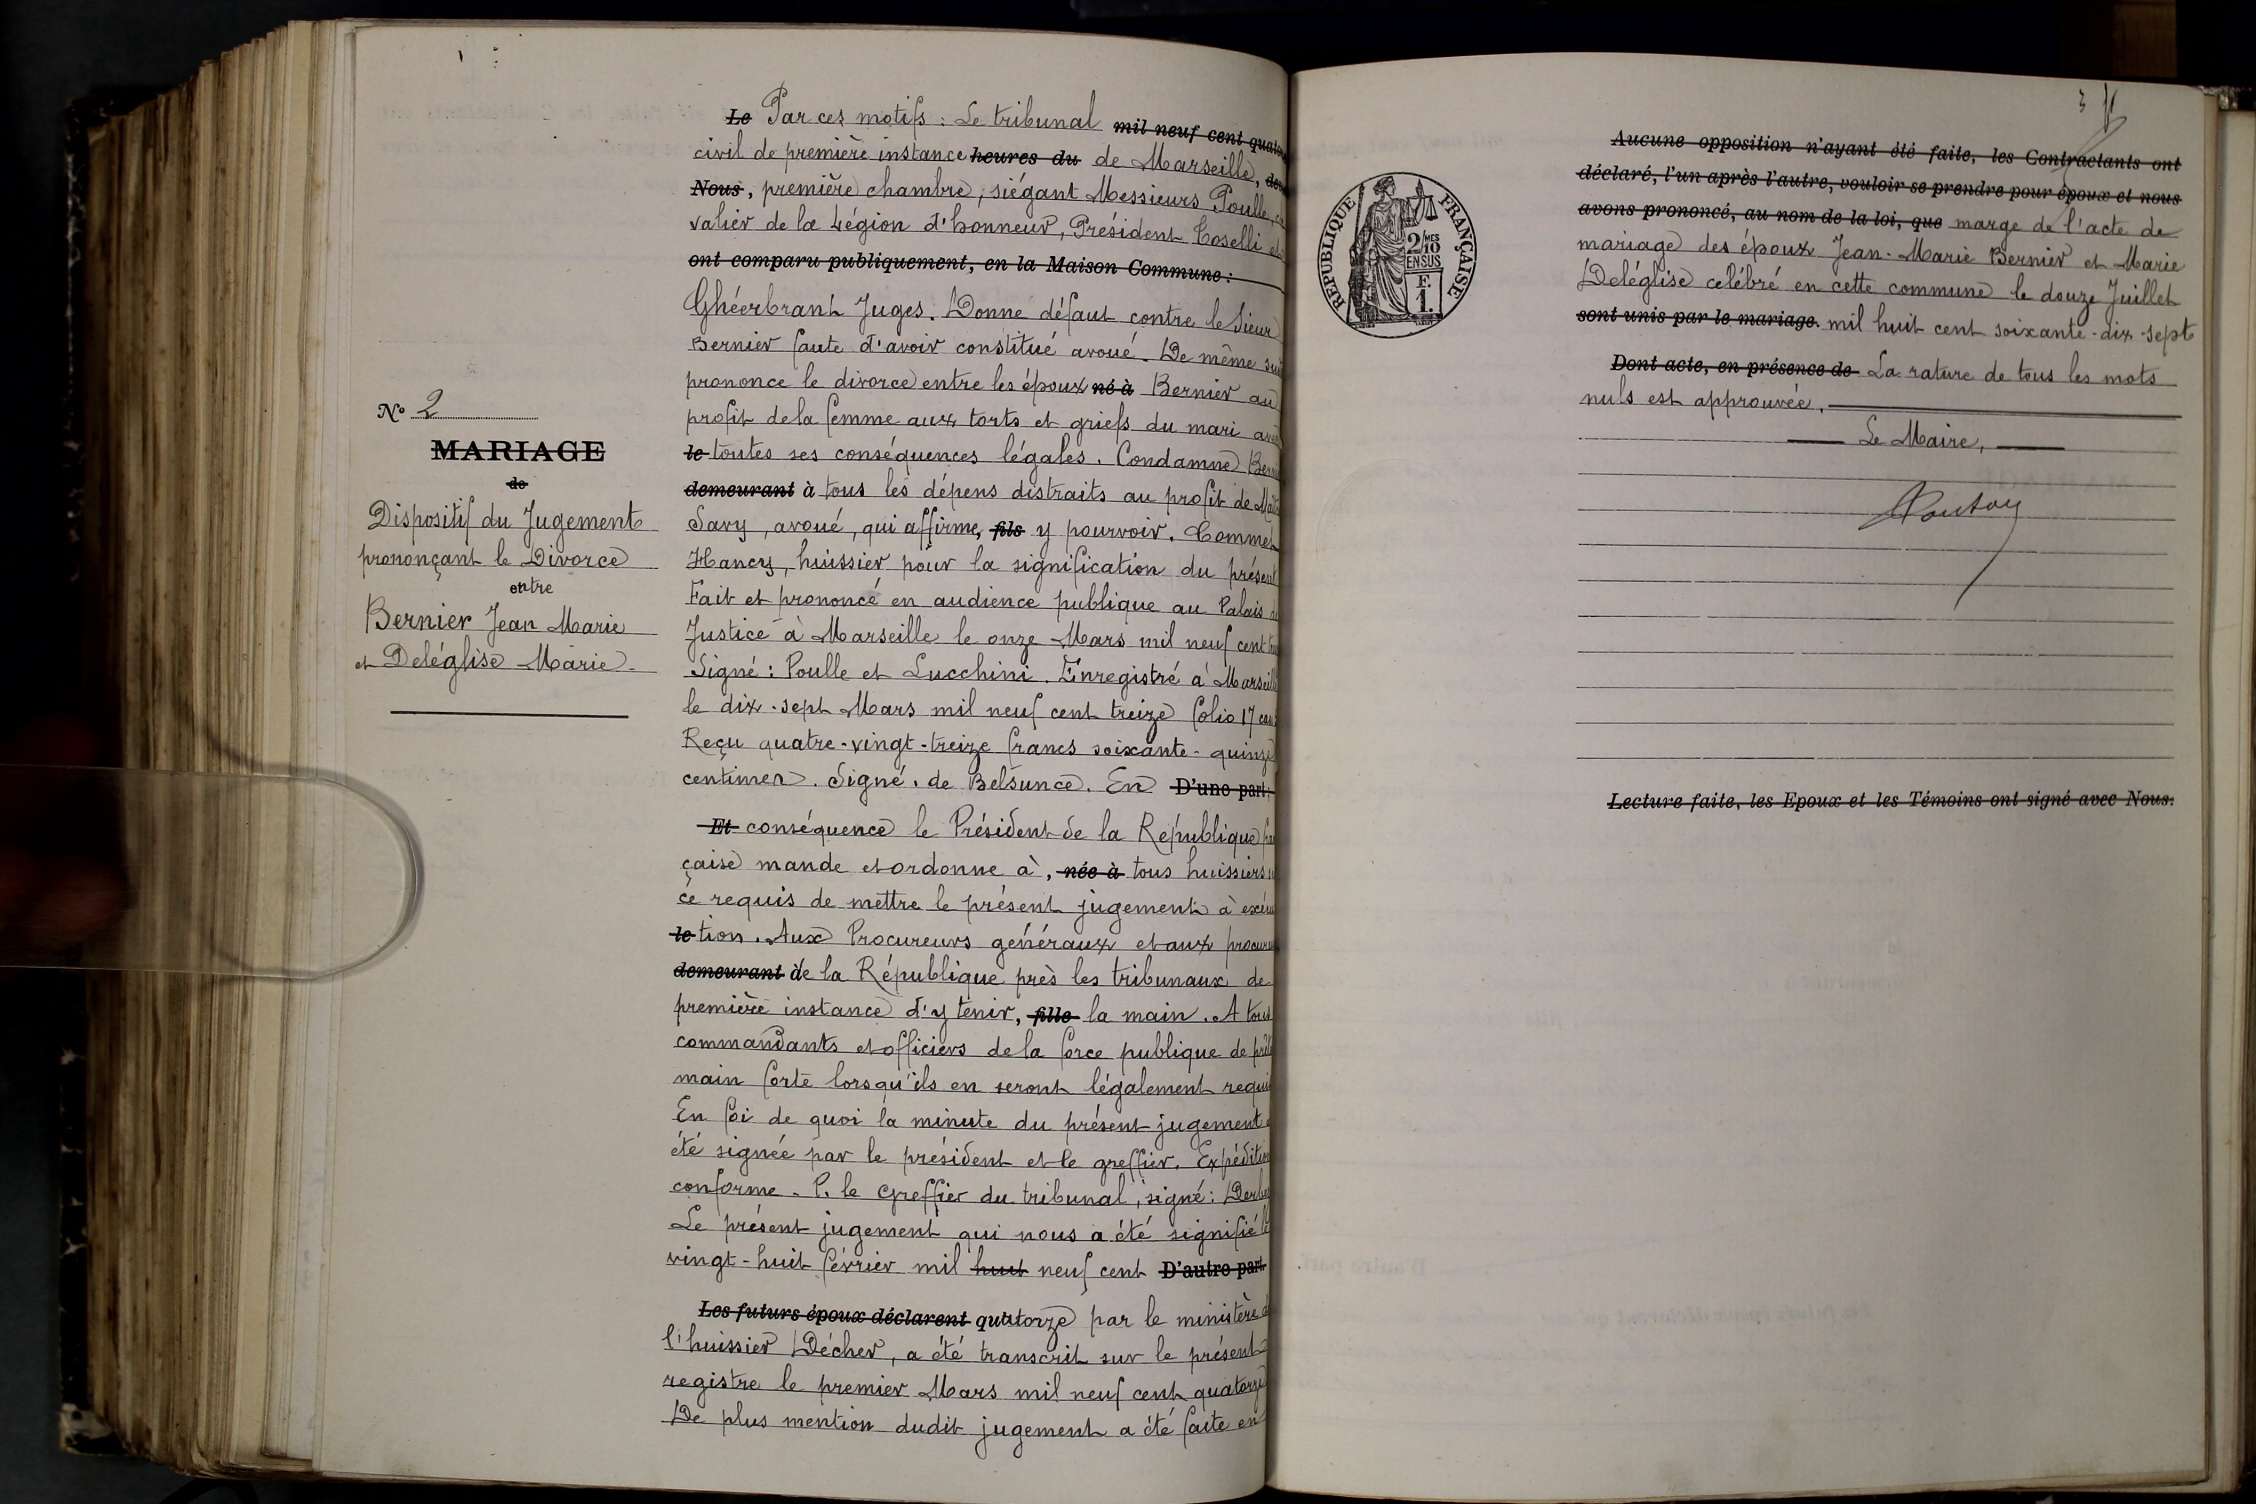 Le Par ces motifs : Le tribunal mil neuf cent quato
civil de première instance heures du de Marseille,
Nous, première chambre, siégant Messieurs Poulle,
valier de la Légion d'honneur, Président Coselli et
ont comparu publiquement, en la Maison Commune :
Ghéerbrant Juges. Donne défaut contre le Sieur
Bernier faute d'avoir constitué avoué. De même
prononce le divorce entre les époux né à Bernier au
profit de la femme aux torts et griefs du mari
le toutes ses conséquences légales. Condamne
demeurant à tous les dépens distraits au profit de
Savy, avoué, qui affirme, fils y pourvoir. Commet
Hancy, huissier pour la signification du présent
Fait et prononcé en audience publique au Palais
Justice à Marseille le onze Mars mil neuf cent
Signé : Poulle et Lucchini. Enregistré à Marseille
le dix-sept Mars mil neuf cent treize folio 17
Reçu quatre-vingt-treize francs soixante-quinze
centimes. Signé. de Belsunce. En D'une part;
Et conséquence le Président de la République
çaise mande et ordonne à, née à tous huissiers
ce requis de mettre le présent jugement à exécu
le tion. Aux Procureurs généraux et aux procureu
demeurant de la République près les tribunaux de
première instance d'y tenir, fille la main. A tous
commandants et officiers de la force publique de
main forte lorsqu'ils en seront légalement requis
En foi de quoi la minute du présent jugement
été signée par le président et le greffier. Expédition
conforme. P. le Greffier du tribunal, signé :
Le présent jugement qui nous a été signifié le
vingt-huit février mil huit neuf cent D'autre part
Les futurs époux déclarent quatorze par le ministère
l'huissier Décher, a été transcrit sur le présent
registre le premier Mars mil neuf cent quatorze
De plus mention dudit jugement a été faite en
No 2
MARIAGE
de
Dispositif du Jugement
prononçant le Divorce
entre
Bernier Jean Marie
et Deléglise Marie.
3
REPUBLIQUE FRANÇAISE
2/MES
10
EN SUS
F.
1.
Aucune opposition n'ayant été faite, les Contractants ont
déclaré, l'un après l'autre, vouloir se prendre pour époux et nous
avons prononcé, au nom de la loi, que marge de l'acte de
mariage des époux Jean-Marie Bernier et Marie
Deléglise celébré en cette commune le douze Juillet
sont unis par le mariage. mil huit cent soixante-dix-sept
Dont acte, en présence de La rature de tous les mots
nuls est approuvée.
Le Maire,
Lecture faite, les Epoux et les Témoins ont signé avec Nous.